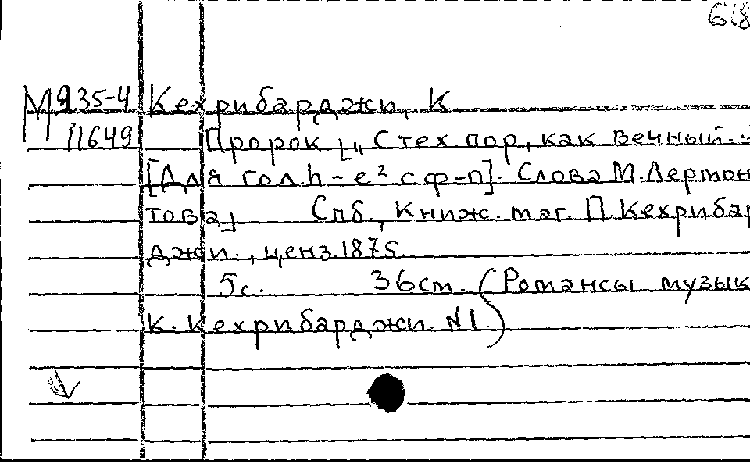 618
М 935-4 Кехрибарджи, К
11649 Пророк [„С тех пор, как вечный
[Для гол. h – e² с ф-п]. Слова М. Лермон
това] Спб., Книж. маг. П. Кехрибар
джи, ценз. 1875
5с. 36cm. (Романсы музык
К. Кехрибарджи. N1)